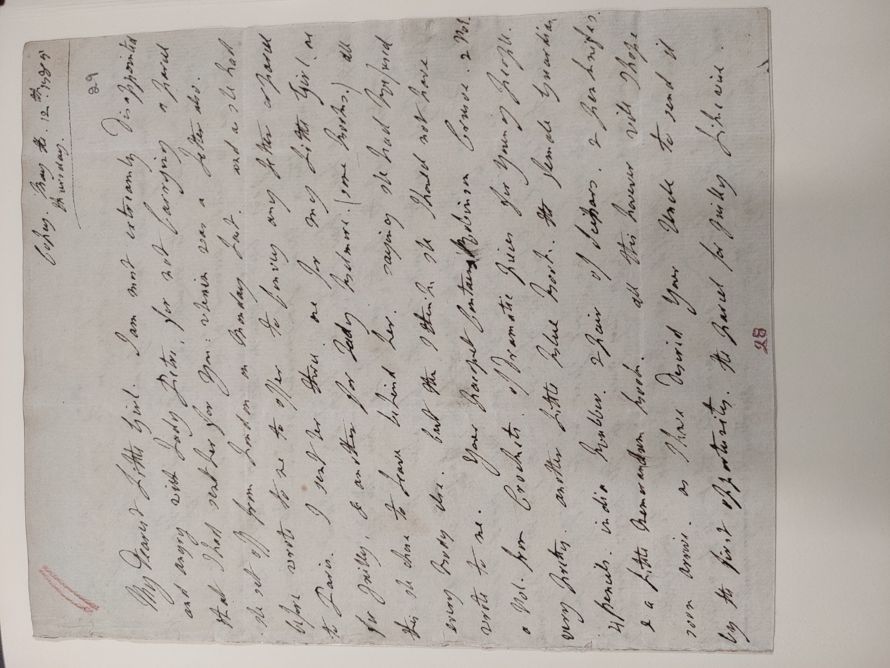 Copy. May the. 12th. 1785
Thursday.
29
My Dearest Little Girl. I am most extreamly Disappointed
and angry with Lady for not Carrying a parcel
that I had sent her for you: wherein was a Letter also.
She set off from London on Monday last. and as she had
before wrote to me to offer to Convey any Letter or parcel
to Paris. I sent her three. one for my Little Girl. one
for & another for Lady (some books.) all
this she chose to Leave behind her. saying she had
every body else. but this I think she should not have
wrote to me. Your Parcel Contained Robinson Crusoe. 2 Vol.
a Vol. from of Dramatic Pieces for Young People.
very pretty. another Little blue Book. the female Guardian
4 pencils. india Rubber. 2 pair of Scissars. 2 penknifes.
& a Little Memorandum book. all this however will I hope
soon arrive. as I have Desired Your Uncle to send it
by the first opportunity. the parcel for Likewise.
28